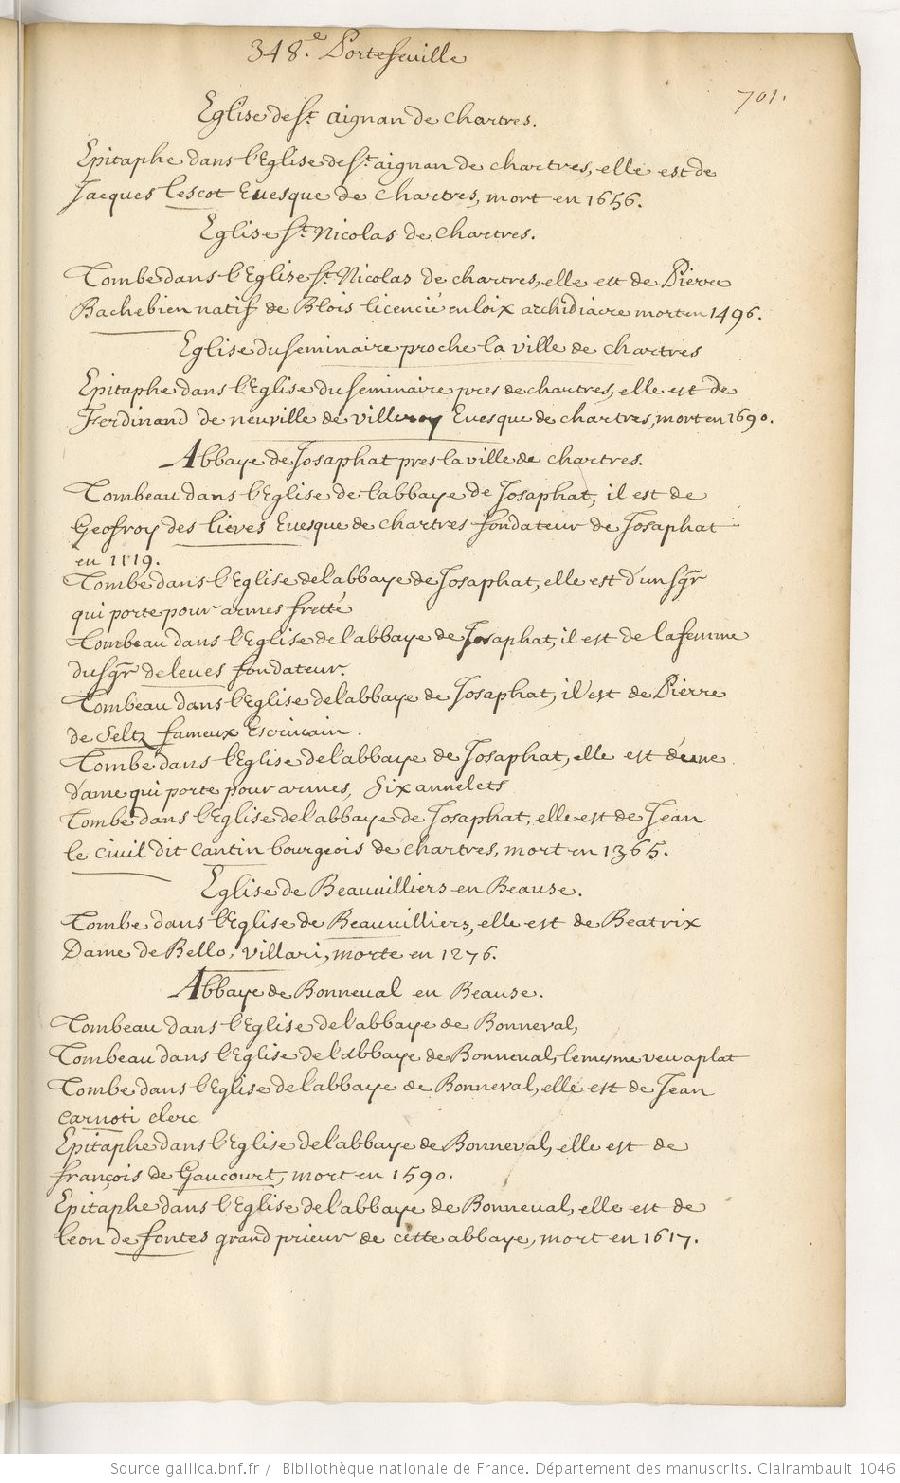 348.e Portefeuille
701.
Eglise de St. aignan de chartres.
Epitaphe dans l'Eglise de St. aignan de chartres, elle est de
Jacques Lescot Euesque de chartres, mort en 1656.
Eglise St. Nicolas de chartres.
Tombe dans l'Eglise St. Nicolas de chartres, elle est de Pierre
Bachebien natif de Blois licencié en loix archidiacre mort en 1496.
Eglise du seminaire proche la ville de chartres
Epitaphe dans l'Eglise du seminaire pres de chartres, elle est de
Ferdinand de neuville de villeroy Euesque de chartres, mort en 1690.
Abbaye de Josaphat pres la ville de chartres.
Tombeau dans l'Eglise de l'abbaye de Josaphat, il est de
Geofroy des lieves Euesque de chartres fondateur de Josaphat
en 1119.
Tombe dans l'Eglise de l'abbaye de Josaphat, elle est d'un sgr
qui porte pour armes fretté
Tombeau dans l'Eglise de l'abbaye de Josaphat, il est de la femme
du sgr de leues fondateur.
Tombeau dans l'Eglise de l'abbaye de Josaphat, il est de Pierre
de Celtz fameux Escriuain.
Tombe dans l'Eglise de l'abbaye de Josaphat, elle est d'une
dame qui porte pour armes, six annelets
Tombe dans l'Eglise de l'abbaye de Josaphat, elle est de Jean
le civil dit Cantin bourgeois de chartres, mort en 1365.
Eglise de Beauuilliers en Beause.
Tombe dans l'Eglise de Beauuilliers, elle est de Beatrix
Dame de Bello, villari, morte en 1276.
Abbaye de Bonneval en Beause.
Tombeau dans l'Eglise de l'abbaye de Bonneval,
Tombeau dans l'Eglise de l'Abbaye de Bonneual, le mesme veu a plat
Tombe dans l'Eglise de l'abbaye de Bonneval, elle est de Jean
Carnoti clerc
Epitaphe dans l'Eglise de l'abbaye de Bonneval, elle est de
françois de Gaucourt, mort en 1590.
Epitaphe dans l'Eglise de l'abbaye de Bonneual, elle est de
leon de fontes grand prieur de cette abbaye, mort en 1617.
Source gallica.bnf.fr / Bibliothèque nationale de France. Département des manuscrits. Clairambault 1046